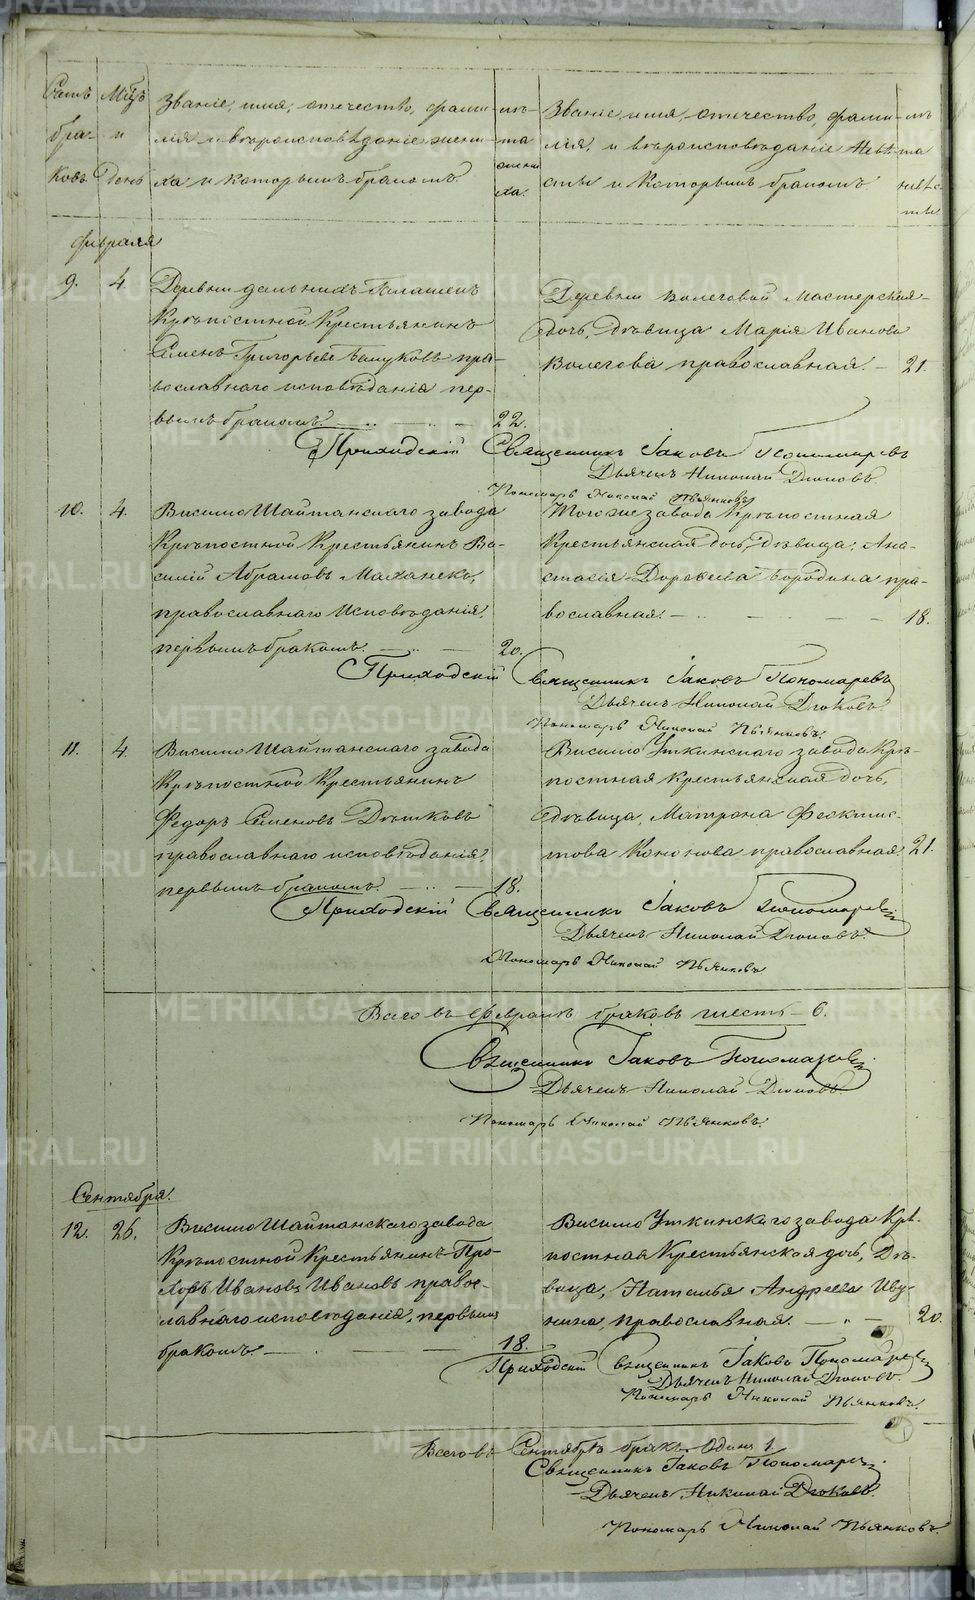 Счетъ браковъ.
Мѣцъ и день
Званіе, имя, отчество, фами-
лія и вѣроисповѣданіе жени-
ха и которымъ бракомъ.
лѣта жениха.
Званіе имя, отчество, фами-
лія, и вѣроисповѣданіе невѣ-
сты и которымъ бракомъ
лѣта невѣсты.
Февраля
9. 4.
Деревни дальнихъ
Крѣпостной Крестьянинъ
Семенъ Григорьевъ пра-
вославнаго исповѣданія пер-
вымъ бракомъ. 22.
Деревни Волеговой Мастерская
дочь, дѣвица Марія Иванова
Волегова православная. 21.
Приходскій Священникъ Іаковъ Пономаревъ
Дьячекъ Николай
Пономарь Николай Пьянковъ
10. 4.
Висимо Шайтанскаго завода
Крѣпостной Крестьянинъ Ва-
силій Абрамовъ
православнаго исповѣданія,
первымъ бракомъ. 20.
Тогоже завода Крѣпостная
Крестьянская дочь, дѣвица, Ана-
стасія Бородина пра-
вославная. 18.
Приходскій Священникъ Іаковъ Пономаревъ
Дьячекъ Николай
Пономарь Николай Пьянковъ.
11. 4
Висимо Шайтанскаго завода
Крѣпостной Крестьянинъ
Федоръ Семеновъ
православнаго исповѣданія,
первымъ бракомъ. 18.
Висимо Уткинскаго завода Крѣ-
постная Крестьянская дочь,
дѣвица, Матрона Феокти-
стова Кононова православная. 21.
Приходскій Священникъ Іаковъ Пономаревъ
Дьячекъ Николай
Пономарь Николай Пьянковъ
Всего въ Февралѣ браковъ шесть 6.
Священникъ Іаковъ Пономаревъ
Дьячекъ Николай
Пономарь Николай Пьянковъ.
Сентября.
12. 26.
Висимо Шайтанскаго завода
Крѣпостной Крестьянинъ Про-
хоръ Ивановъ Ивановъ правос-
лавнаго исповѣданія, первымъ
бракомъ. 18.
Висимо Уткинскаго завода Крѣ-
постная Крестьянская дочь, дѣ-
вица, Наталья Андреева
православная. 20.
Приходскій Священникъ Іаковъ Пономаревъ
Дьячекъ Николай
Пономарь Николай Пьянковъ.
Всего въ Сентябрѣ бракъ Одинъ 1.
Священникъ Іаковъ Пономаревъ
Дьячекъ Николай
Пономарь Николай Пьянковъ.
METRIKI.GASO-URAL.RU